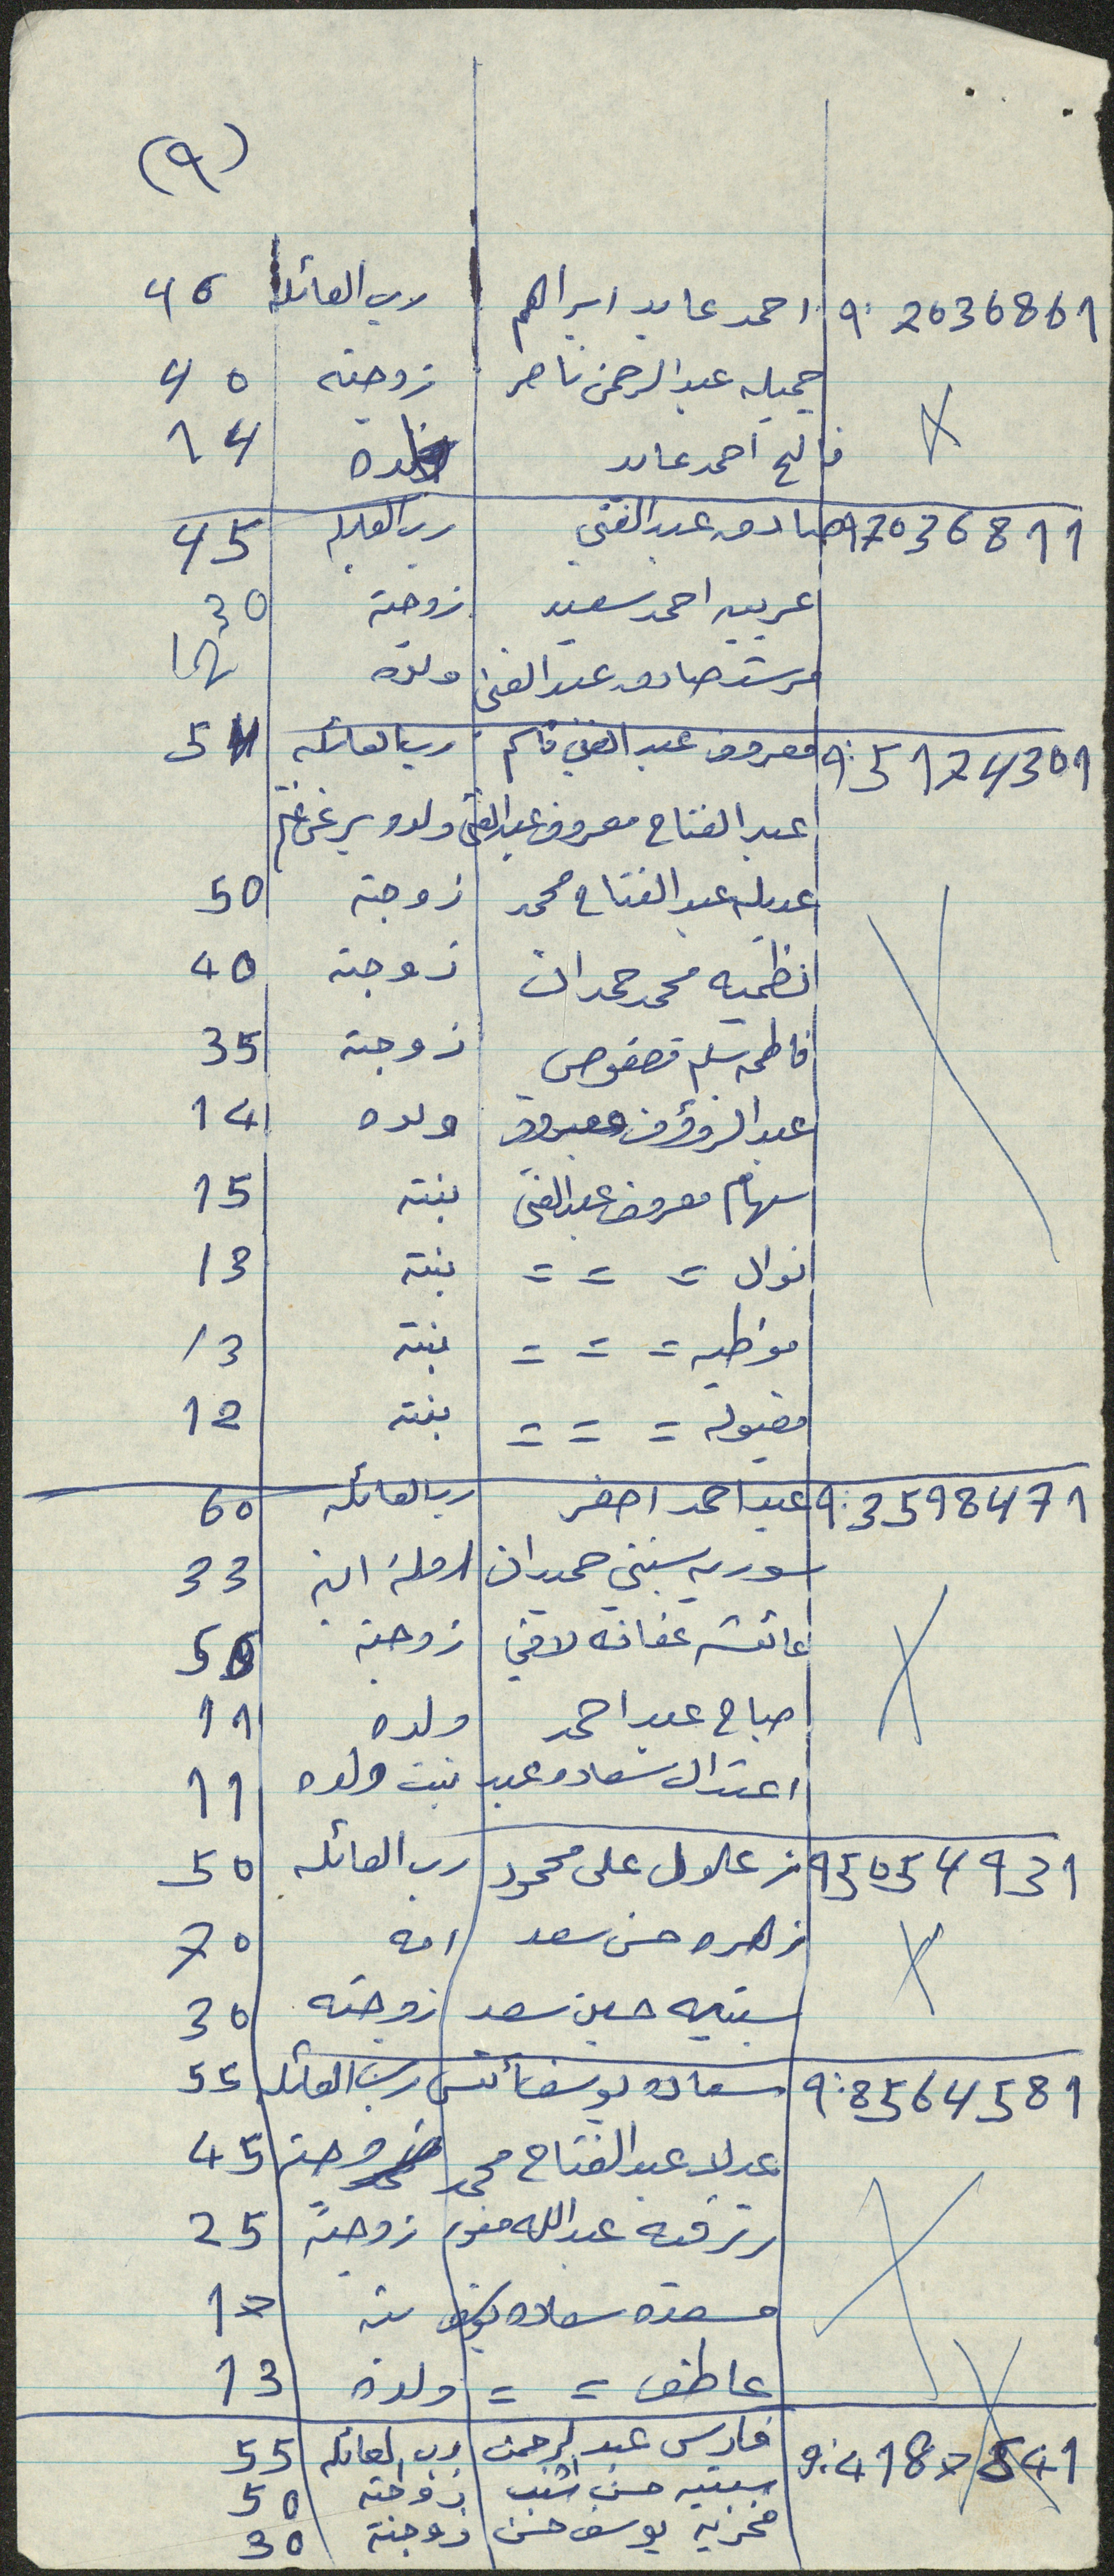 (٩)
9:2036861 احمد عابد ابراهم رب العائله 46
جميله عبد الرحمن ناصر زوجته 40
فالح احمد عابد ولده 14
92036811 صادق عبد الغني رب العايله 45
عربيه احمد سعيد زوجته 30
مرشد صادق عبد الغني ولده
9:5124301 معروف عبد الغني قاسم رب العائله 54
عبد الفتاح معروف عبد الغني ولدو
عديله عبد الفتاح محمد زوجته 50
نظميه محمد حمدان زوجته 40
فاطمه سليم زوجته 35
عبد الرؤوف معروف ولده 14
سهام معروف عبد الغني بنته 15
نوال = = = بنته 13
موظيه = = = بنته 13
مقبوله = = = بنته 12
9:3598471 عبد احمد اصفر رب العائله 60
سوريه حميدان ارملة ابنه 33
عائشه عفانه لافي زوجته 50
صباح عبد احمد ولده 11
اعتدال سعاده عبد بنت ولده 11
95054931 زعلول على محمود رب العائله 50
زهره حسن سعد امه 70
سبتيه حسين سعد زوجته 30
9:8564581 سعاده يوسف رب العائله 55
عدلا عبد الفتاح محمد زوجته 45
رزقيه عبد الله زوجتة 25
مسعده سعاده يوسف بنته 17
عاطف = = ولده 13
9:4187541 فارس عبد الرحمن رب العائله 55
سبتيه حسن زوجته 50
فخريه يوسف حسن زوجته 30